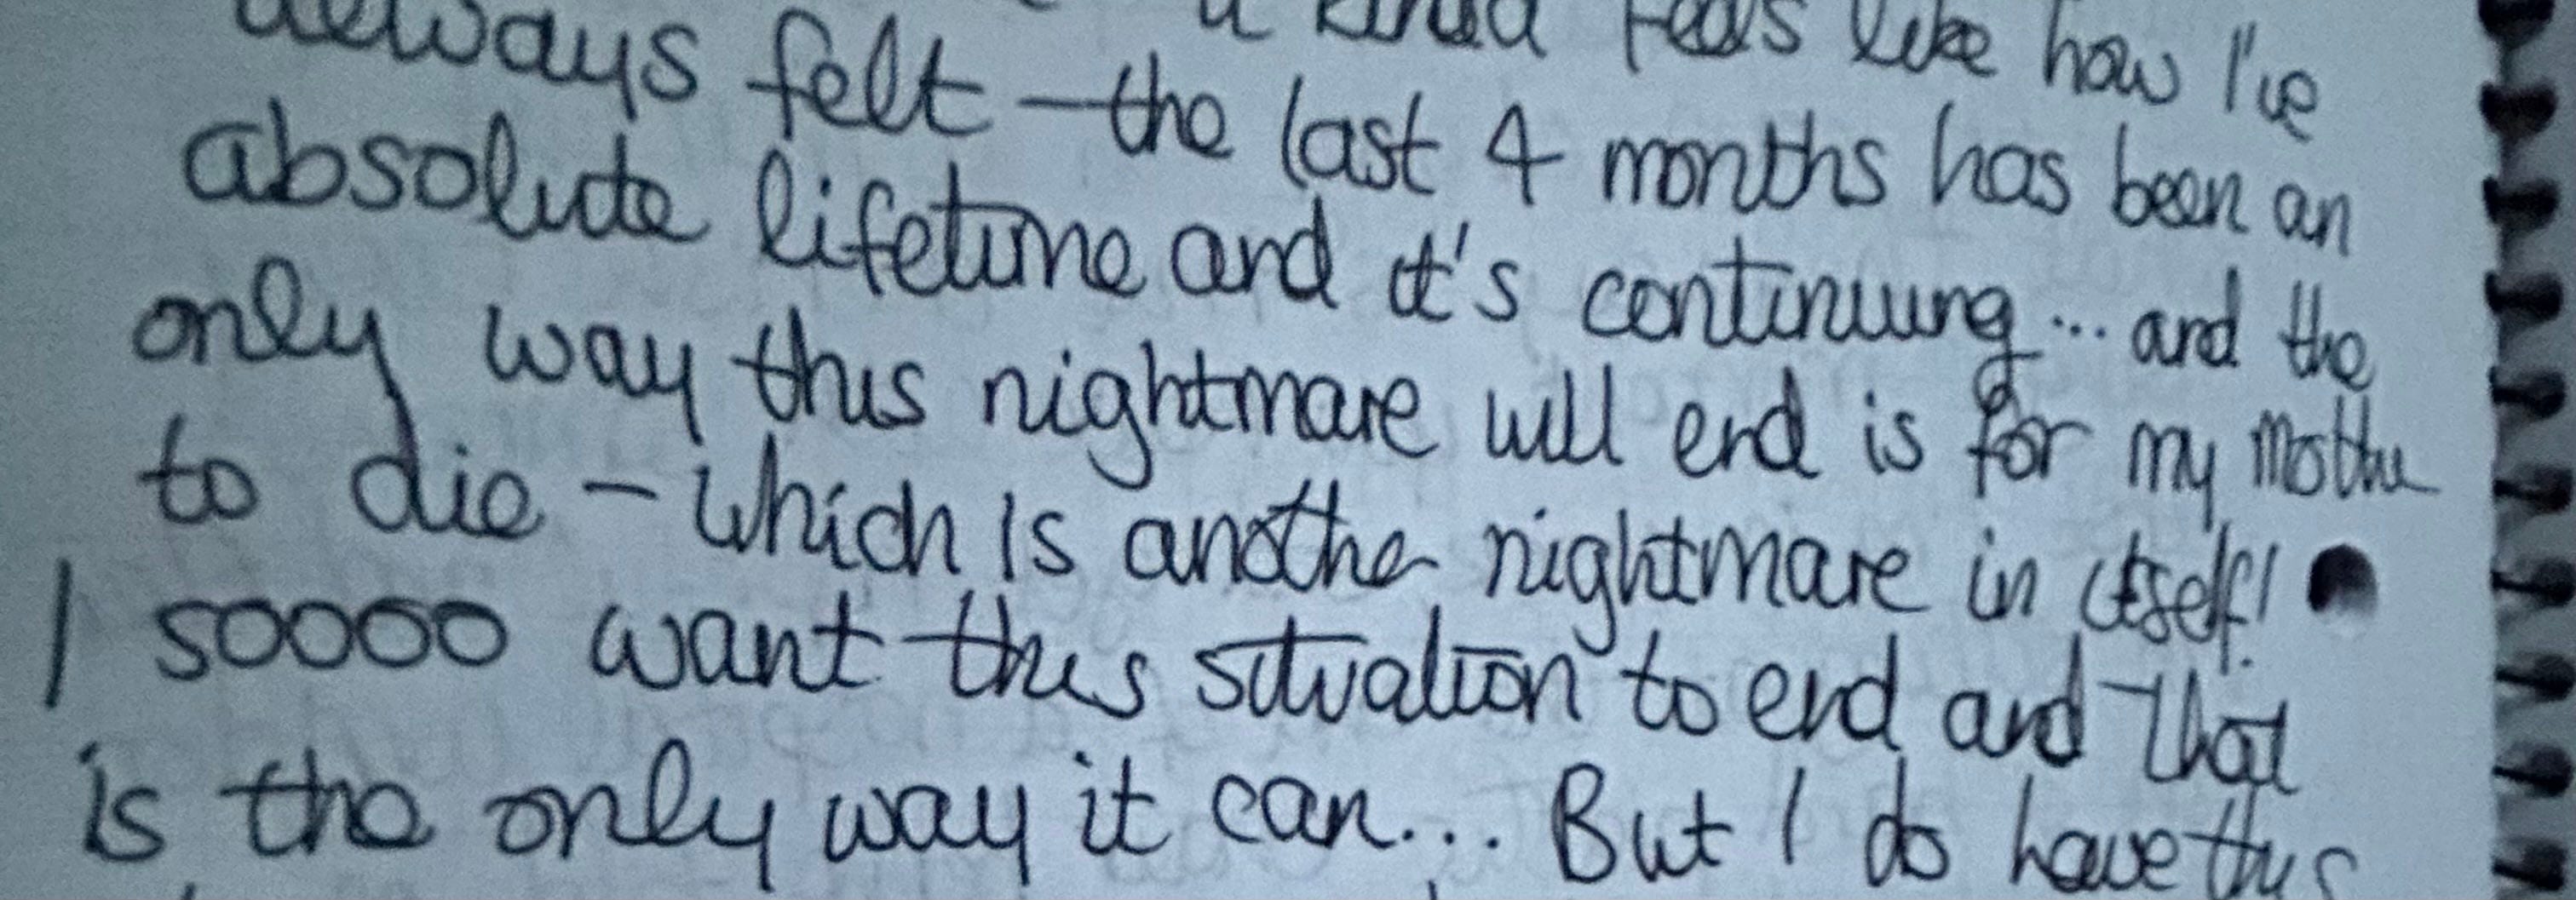 it kinda feels like how I've
always felt - the last 4 months has been an
absolute lifetime and it's continuing... and the
only way this nightmare will end is for my mother
to die - which is another nightmare in itself!
I soooo want this situation to end and that
is the only way it can... But I do have this